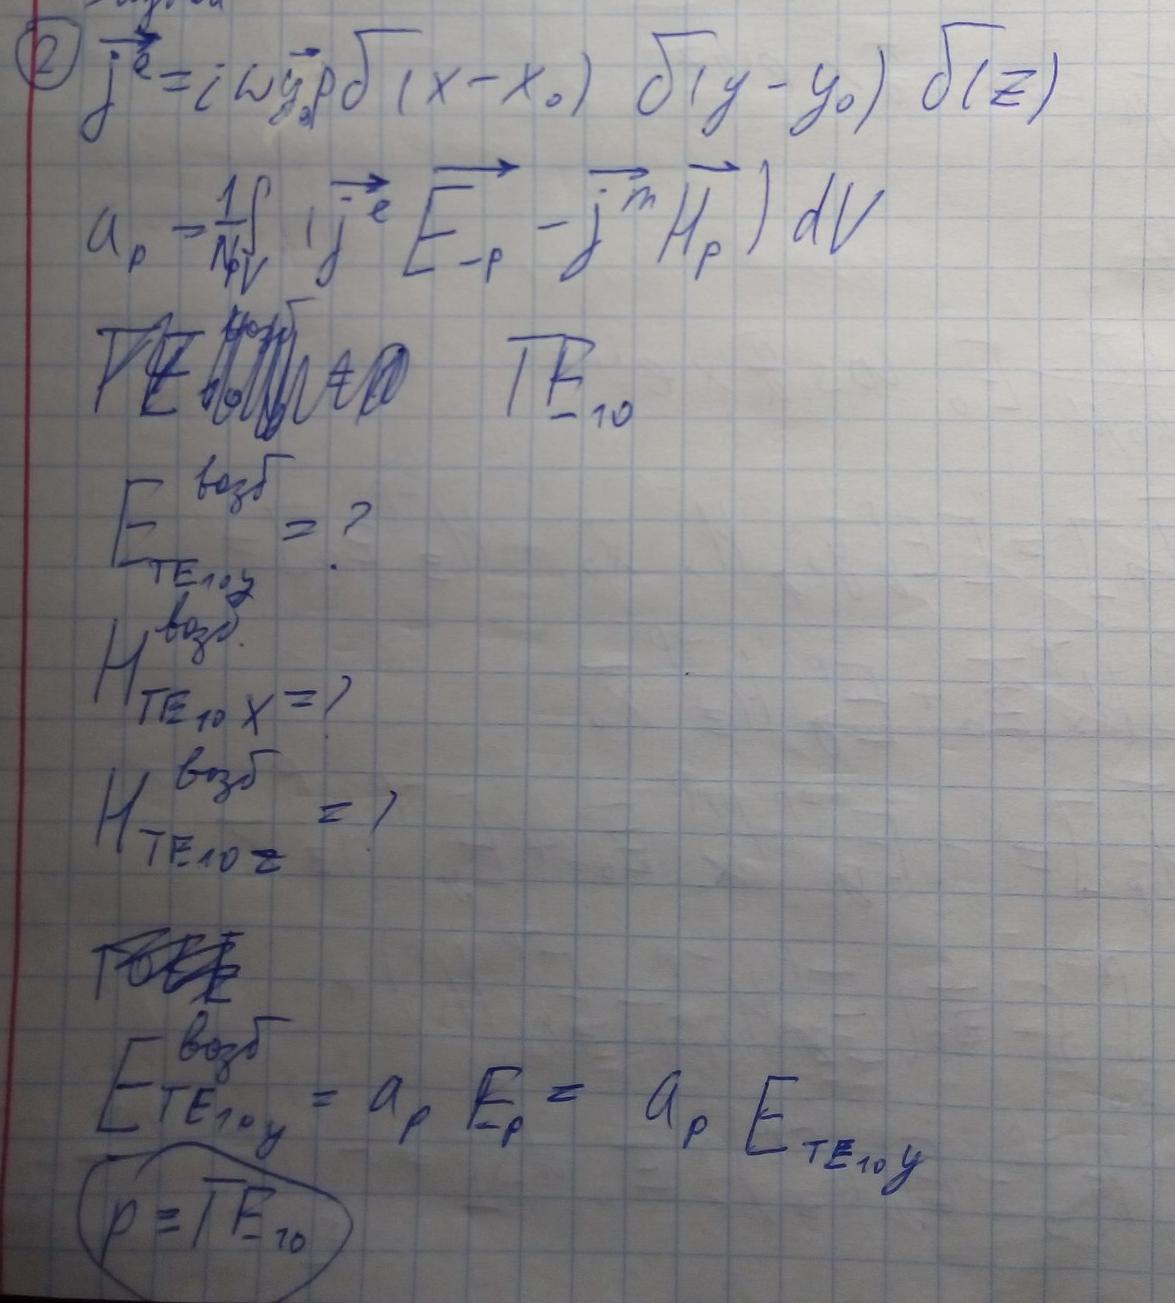 ② j⃗ᵉ = iωy⃗₀pδ(x-x₀) δ(y-y₀) δ(z)
aₚ = 1/Nₚ ∫ᵥ (j⃗ᵉ E⃗₋ₚ - j⃗ᵐ H⃗ₚ) dV
TE₁₀
E возб TE₁₀y = ?
H возб. TE₁₀x = ?
H возб TE₁₀z = ?
E возб TE₁₀y = aₚ Eₚ = aₚ E TE₁₀y
p = TE₁₀